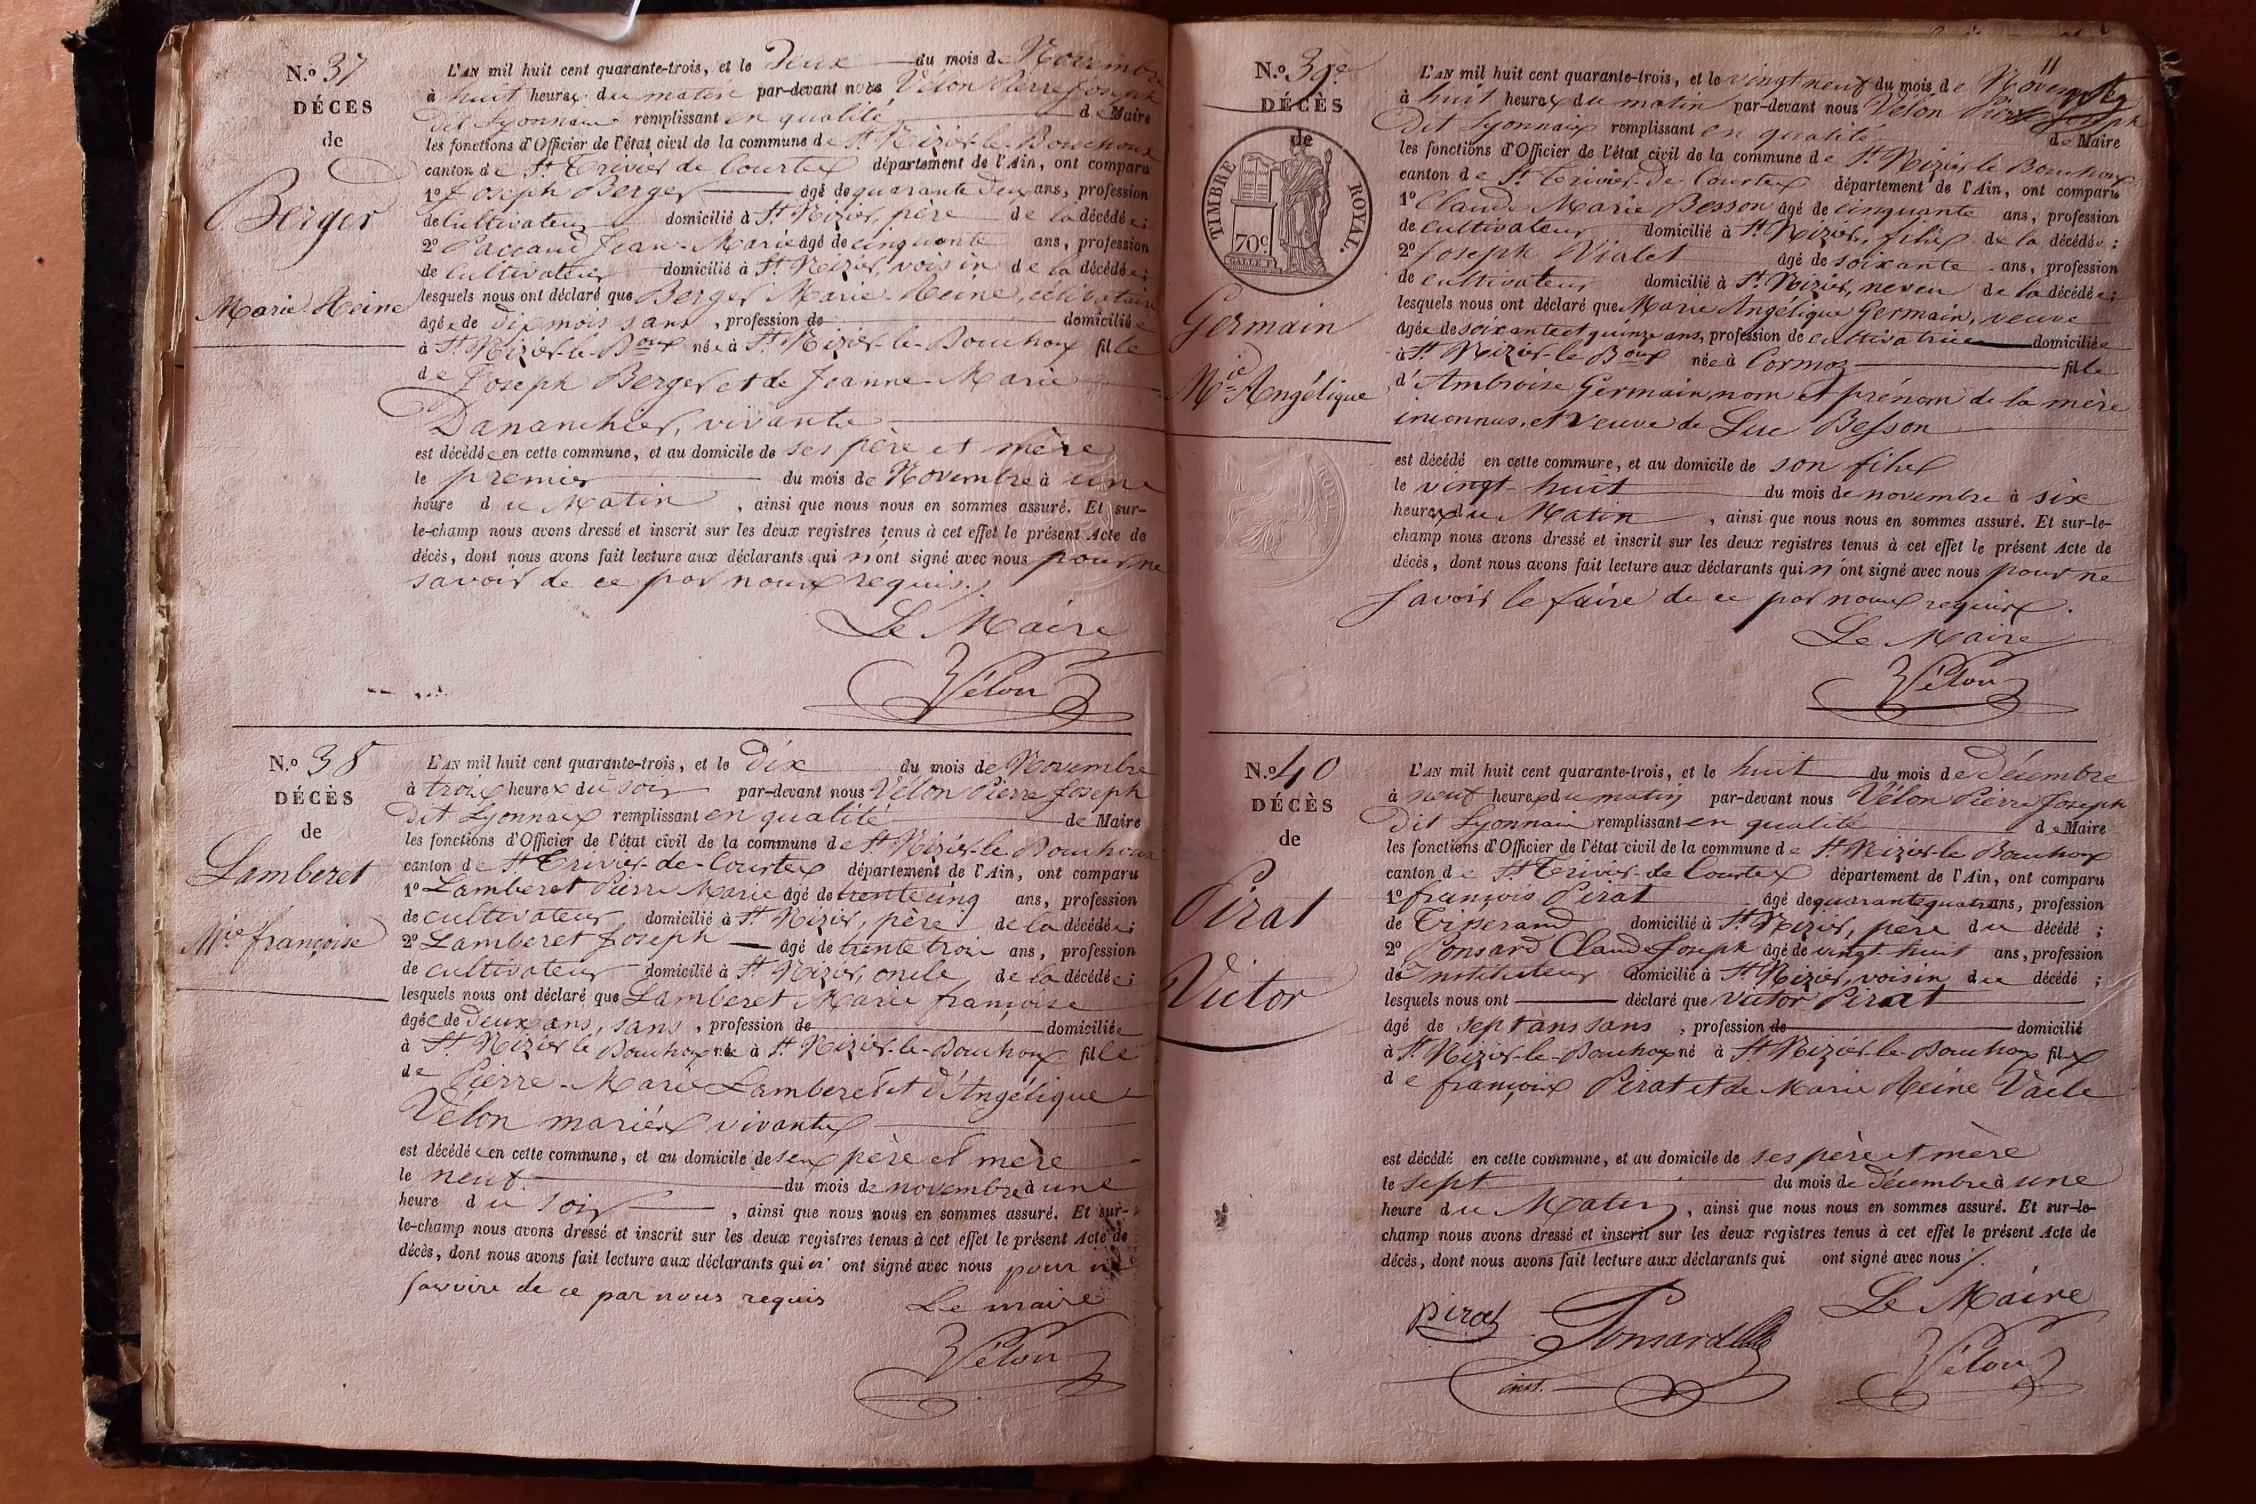 N.o 37
DÉCES
de
Berger
Marie Reine
L'AN mil huit cent quarante-trois, et le Deux du mois de Novembre
à huit heures du matin par-devant nous Vélon Pierre Joseph
dit Lyonnais remplissant en qualité de Maire
les fonctions d'Officier de l'état civil de la commune de St Nizier-le-Bouchoux
canton de St Trivier de Courtes département de l'Ain, ont comparu
1o Joseph Berger âgé de quarante deux ans, profession
de Cultivateur domicilié à St Nizier, père de la décédée;
2o Paccaud Jean-Marie âgé de cinquante ans, profession
de Cultivateur domicilié à St Nizier, voisin de la décédée;
lesquels nous ont déclaré que Berger Marie Reine, célibataire
âgée de dix mois sans, profession de domicilié
à St Nizier-le-Boux née à St Nizier-le-Bouchoux fille
de Joseph Berger et de Jeanne-Marie
Dananchier, vivants
est décédée en cette commune, et au domicile de ses père et mère
le premier du mois de Novembre à une
heure du Matin, ainsi que nous nous en sommes assuré. Et sur-
le-champ nous avons dressé et inscrit sur les deux registres tenus à cet effet le présent Acte de
décès, dont nous avons fait lecture aux déclarants qui n'ont signé avec nous pour ne
savoir de ce par nous requis.
Le Maire
Vélon
N.o 38
DÉCÈS
de
Lamberet
Mie françoise
L'AN mil huit cent quarante-trois, et le dix du mois de Novembre
à trois heures du soir par-devant nous Vélon Pierre Joseph
dit Lyonnais remplissant en qualité de Maire
les fonctions d'Officier de l'état civil de la commune de St Nizier-le-Bouchoux
canton de St Trivier-de-Courtes département de l'Ain, ont comparu
1o Lamberet Pierre Marie âgé de trente cinq ans, profession
de cultivateur domicilié à St Nizier, père de la décédée;
2o Lamberet Joseph âgé de trente trois ans, profession
de cultivateur domicilié à St Nizier, oncle de la décédée;
lesquels nous ont déclaré que Lamberet Marie françoise
âgée de deux ans, sans, profession de domiciliée
à St Nizier le Bouchoux née à St Nizier-le-Bouchoux fille
de Pierre-Marie Lamberet et d'Angélique
Vélon mariés vivants
est décédée en cette commune, et au domicile de ses père et mère
le neuf du mois de novembre à une
heure du soir, ainsi que nous nous en sommes assuré. Et sur-
le-champ nous avons dressé et inscrit sur les deux registres tenus à cet effet le présent Acte de
décès, dont nous avons fait lecture aux déclarants qui n' ont signé avec nous pour ne
savoire de ce par nous requis
Le maire
Vélon
11
N.o 39e
DÉCÈS
de
TIMBRE ROYAL.
70c
Germain
Mie Angélique
L'AN mil huit cent quarante-trois, et le vingt neuf du mois de Novembre
à huit heures du matin par-devant nous Vélon Pierre Joseph
dit Lyonnais remplissant en qualité de Maire
les fonctions d'Officier de l'état civil de la commune de St Nizier le Bouchoux
canton de St Trivier-de-Courtes département de l'Ain, ont comparu
1o Claude Marie Besson âgé de cinquante ans, profession
de cultivateur domicilié à St Nizier, fils de la décédée;
2o Joseph Vialet âgé de soixante ans, profession
de cultivateur domicilié à St Nizier, neveu de la décédée;
lesquels nous ont déclaré que Marie Angélique Germain, veuve
âgée de soixante et quinze ans, profession de cultivatrice domiciliée
à St Nizier-le Boux née à Cormoz fille
d'Ambroise Germain, nom et prénom de la mère
inconnus, et veuve de Luc Besson
est décédé en cette commune, et au domicile de son fils
le vingt-huit du mois de novembre à six
heures du Matin, ainsi que nous nous en sommes assuré. Et sur-le-
champ nous avons dressé et inscrit sur les deux registres tenus à cet effet le présent Acte de
décès, dont nous avons fait lecture aux déclarants qui n'ont signé avec nous pour ne
savoir le faire de ce par nous requis.
Le Maire
Vélon
N.o 40
DÉCÈS
de
Pirat
Victor
L'AN mil huit cent quarante-trois, et le huit du mois de décembre
à neuf heures du matin par-devant nous Vélon Pierre Joseph
dit Lyonnais remplissant en qualité de Maire
les fonctions d'Officier de l'état civil de la commune de St Nizier-le Bouchoux
canton de St Trivier-de Courtes département de l'Ain, ont comparu
1o françois Pirat âgé de quarante quatre ans, profession
de Tisserand domicilié à St Nizier, père du décédé;
2o Ponsard Claude Joseph âgé de vingt-huit ans, profession
de Instituteur domicilié à St Nizier, voisin du décédé;
lesquels nous ont déclaré que Victor Pirat
âgé de sept ans sans, profession de domicilié
à St Nizier-le-Bouchoux né à St Nizier-le-Bouchoux fils
de françois Pirat et de Marie Reine Vacle
est décédé en cette commune, et au domicile de ses père et mère
le sept du mois de décembre à une
heure du Matin, ainsi que nous nous en sommes assuré. Et sur-le-
champ nous avons dressé et inscrit sur les deux registres tenus à cet effet le présent Acte de
décès, dont nous avons fait lecture aux déclarants qui ont signé avec nous.
Le Maire
Pirat
Ponsard
inst.
Vélon